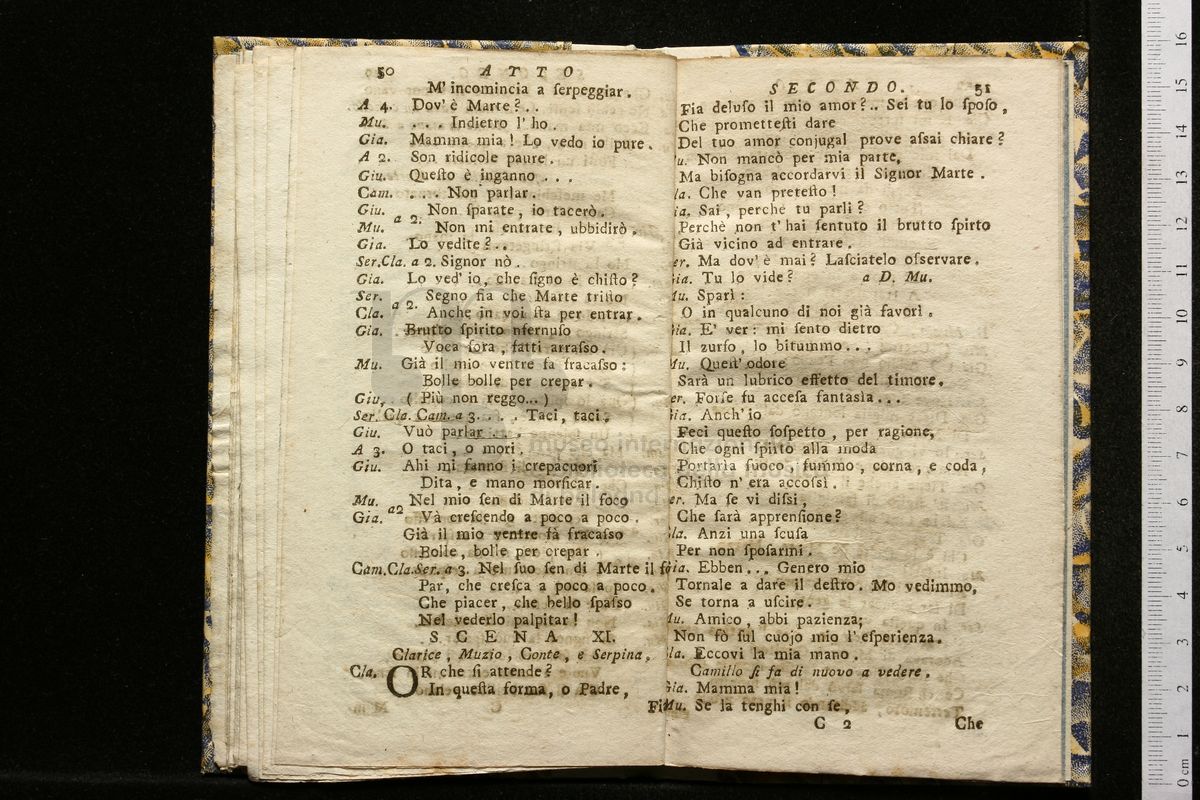 50 ATTO
M' incomincia a ſerpeggiar.
A 4. Dov' è Marte?..
Mu. ... Indietro l' ho.
Gia. Mamma mia! Lo vedo io pure.
A 2. Son ridicole paure.
Giu. Queſto è inganno...
Cam. ... Non parlar.
Giu. a 2. Non ſparate, io tacerò.
Mu. Non mi entrate, ubbidirò.
Gia. Lo vedite?..
Ser.Cla. a 2. Signor nò.
Gia. Lo ved' io, che ſigno è chiſto?
Ser. a 2. Segno fia che Marte triſto
Cla. Anche in voi ſta per entrar.
Gia. Brutto ſpirito nfernuſo
Voca fora, fatti arraſſo.
Mu. Già il mio ventre fa fracaſſo:
Bolle bolle per crepar.
Giu. (Più non reggo...)
Ser. Cla. Cam. a 3. . . . Taci, taci.
Giu. Vuò parlar...
A 3. O taci, o mori.
Giu. Ahi mi fanno i crepacuori
Dita, e mano morſicar.
Mu. Nel mio ſen di Marte il foco
Gia. a2 Và creſcendo a poco a poco.
Già il mio ventre fà fracaſſo
Bolle, bolle per crepar.
Cam.Cla.Ser. a 3. Nel ſuo ſen di Marte il
Par, che creſca a poco a poco.
Che piacer, che bello ſpaſſo
Nel vederlo palpitar!
SCENA XI.
Clarice, Muzio, Conte, e Serpina,
Cla. OR che ſi attende?
In queſta forma, o Padre,
Fi
SECONDO. 51
Fia deluſo il mio amor?.. Sei tu lo ſpoſo,
Che prometteſti dare
Del tuo amor conjugal prove aſsai chiare?
u. Non mancò per mia parte,
Ma biſogna accordarvi il Signor Marte.
la. Che van preteſto!
ia. Sai, perchè tu parli?
Perchè non t' hai ſentuto il brutto ſpirto
Già vicino ad entrare.
er. Ma dov' è mai? Laſciatelo oſservare.
ia. Tu lo vide? a D. Mu.
Mu. Sparì:
O in qualcuno di noi già favorì.
ia. E' ver: mi ſento dietro
Il zurfo, lo bitummo...
Mu. Queſt' odore
Sarà un lubrico effetto del timore.
er. Forſe fu acceſa fantasìa...
ia. Anch' io
Feci queſto ſoſpetto, per ragione,
Che ogni ſpirto alla moda
Portarìa fuoco, fummo, corna, e coda,
Chiſto n' era accoſsì.
er. Ma ſe vi diſsi,
Che ſarà apprenſione?
la. Anzi una ſcuſa
Per non ſpoſarmi.
ia. Ebben... Genero mio
Tornale a dare il deſtro. Mo vedimmo,
Se torna a uſcire.
Mu. Amico, abbi pazienza;
Non fò ſul cuojo mio l' eſperienza.
la. Eccovi la mia mano.
Camillo ſi fa di nuovo a vedere.
ia. Mamma mia!
Mu. Se la tenghi con ſe,
C 2 Che
16
15
14
13
12
11
10
9
8
7
6
5
4
3
2
1
0 cm